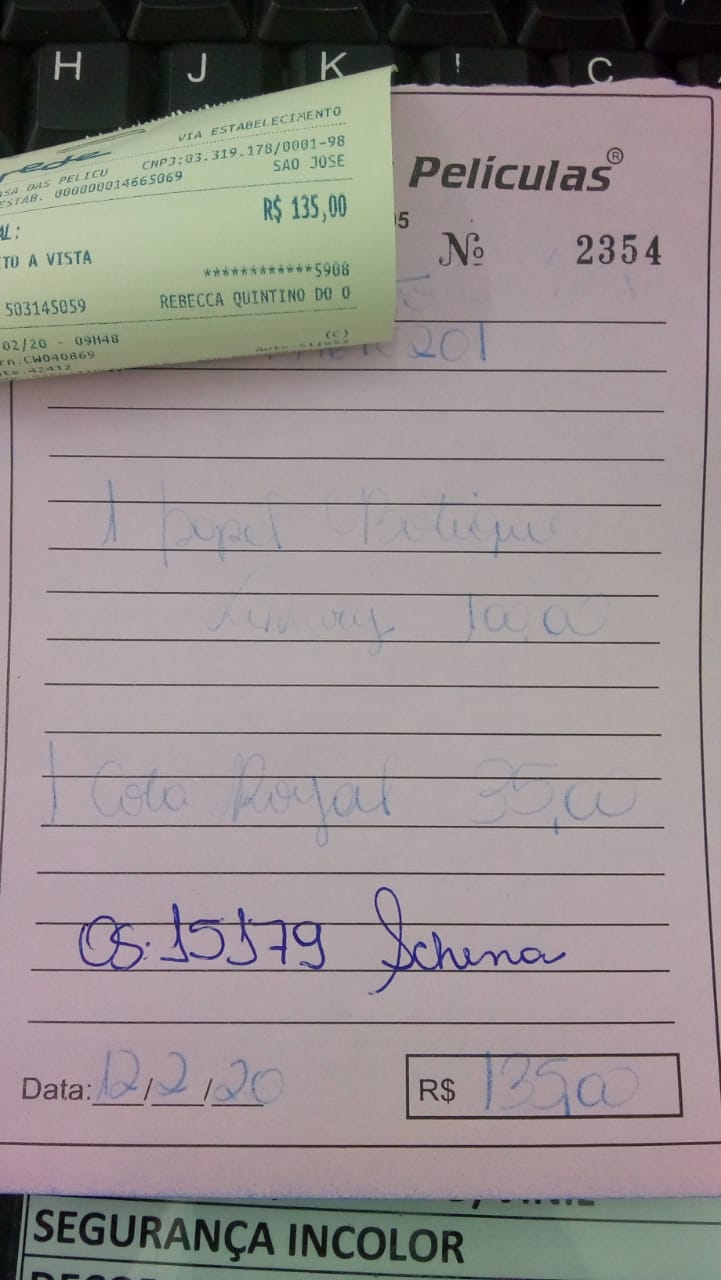 H J K ! C
rede
VIA ESTABELECIMENTO
CNPJ:03.319.178/0001-98
SA DAS PELICU SAO JOSE
ESTAB. 000000014665069
AL: R$ 135,00
TO A VISTA
************5908
503145059 REBECCA QUINTINO DO O
02/20 - 09H48 (C)
CW040869
42412
Películas®
05
Nº 2354
201
1 papel Botique
Luxury 100,00
1 Cola Royal 35,00
OS. 15179 Schena
Data: 12/2/20 R$ 135,00
SEGURANÇA INCOLOR